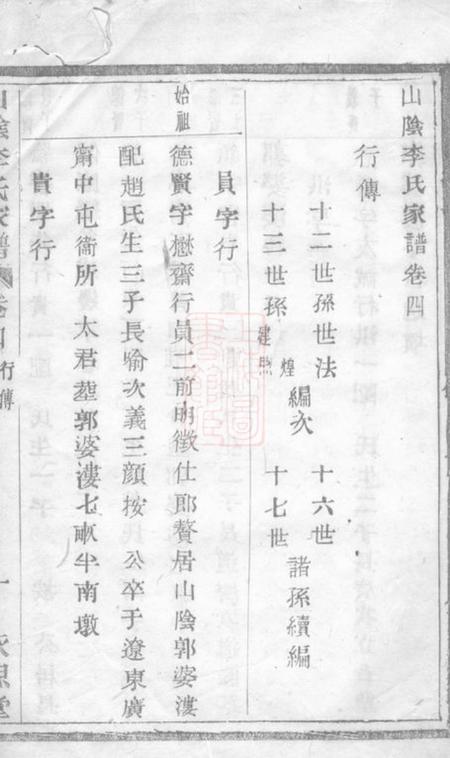 山陰李氏家譜卷四
行傳
十二世孫世法 十六世
十三世孫 煌 建煦 編次 十七世 諸孫續編
員字行
始祖 德賢字懋齋行員二前明徵仕郎贅居山陰郭婆漊
配趙氏生三子長喻次義三顔按 公卒于遼東廣
甯中屯衞所 太君塟郭婆漊七畝半南墩
貴字行
山陰李氏家譜 卷四 行傳 一